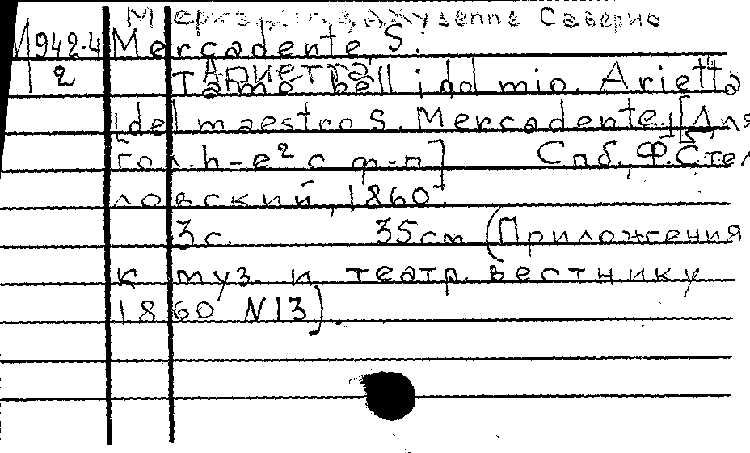 Меркаданте, Джузеппе Саверио
М942.4 Mercadente S.
1 2 Ариетта
T'amo bell idol mio. Arietta
[del maestro S. Mercadente] [Для
гол. h-e² с ф-п] Спб., Ф. Стел
ловский, 1860
3 с. 35 см (Приложения
к муз. и театр. вестнику
1860 N13).